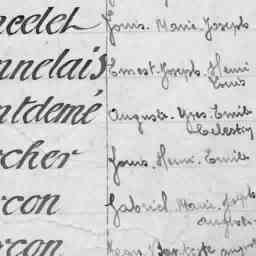 Louis. Marie. Joseph
nnelais Ernest. Joseph. Henri
Louis
ntdemé Auguste. Yves. Emile
Célestin
rcher Louis. Henri. Emile
rcon Gabriel. Marie. Joseph
August
rcon Jean Baptiste August